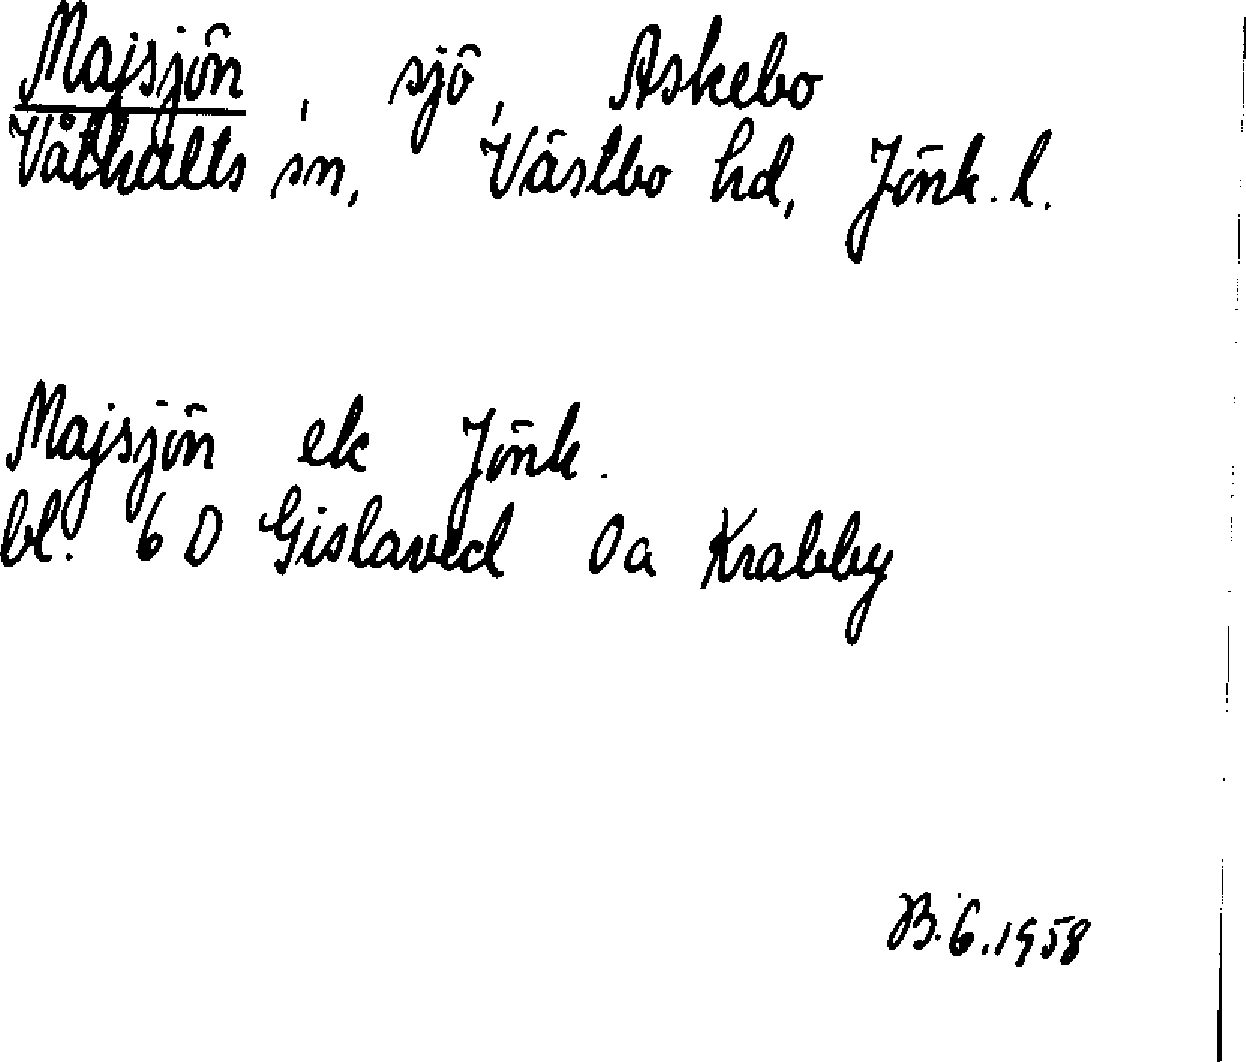 Majsjön, sjö, Askebo
Våthults sn, Västbo hd, Jönk. l.
Majsjön ek Jönk.
bl. 6 D Gislaved 0a Krabby
B.G. 1958